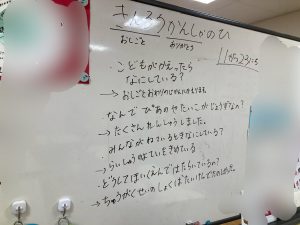 きんろうかんしゃのひ
おしごと ありがとう
11がつ23にち
・こどもがかえったら
なにしている?
→おしごとおわりの
・なんでぴあのやたいこがじょうずなの?
→たくさんれんしゅうしました。
・みんながねているときなにしている?
→らいしゅうのよていをきめている
・どうしてほいくえんではたらいているの?
→ちゅうがくせいのしょくばたいけんでたのしかった